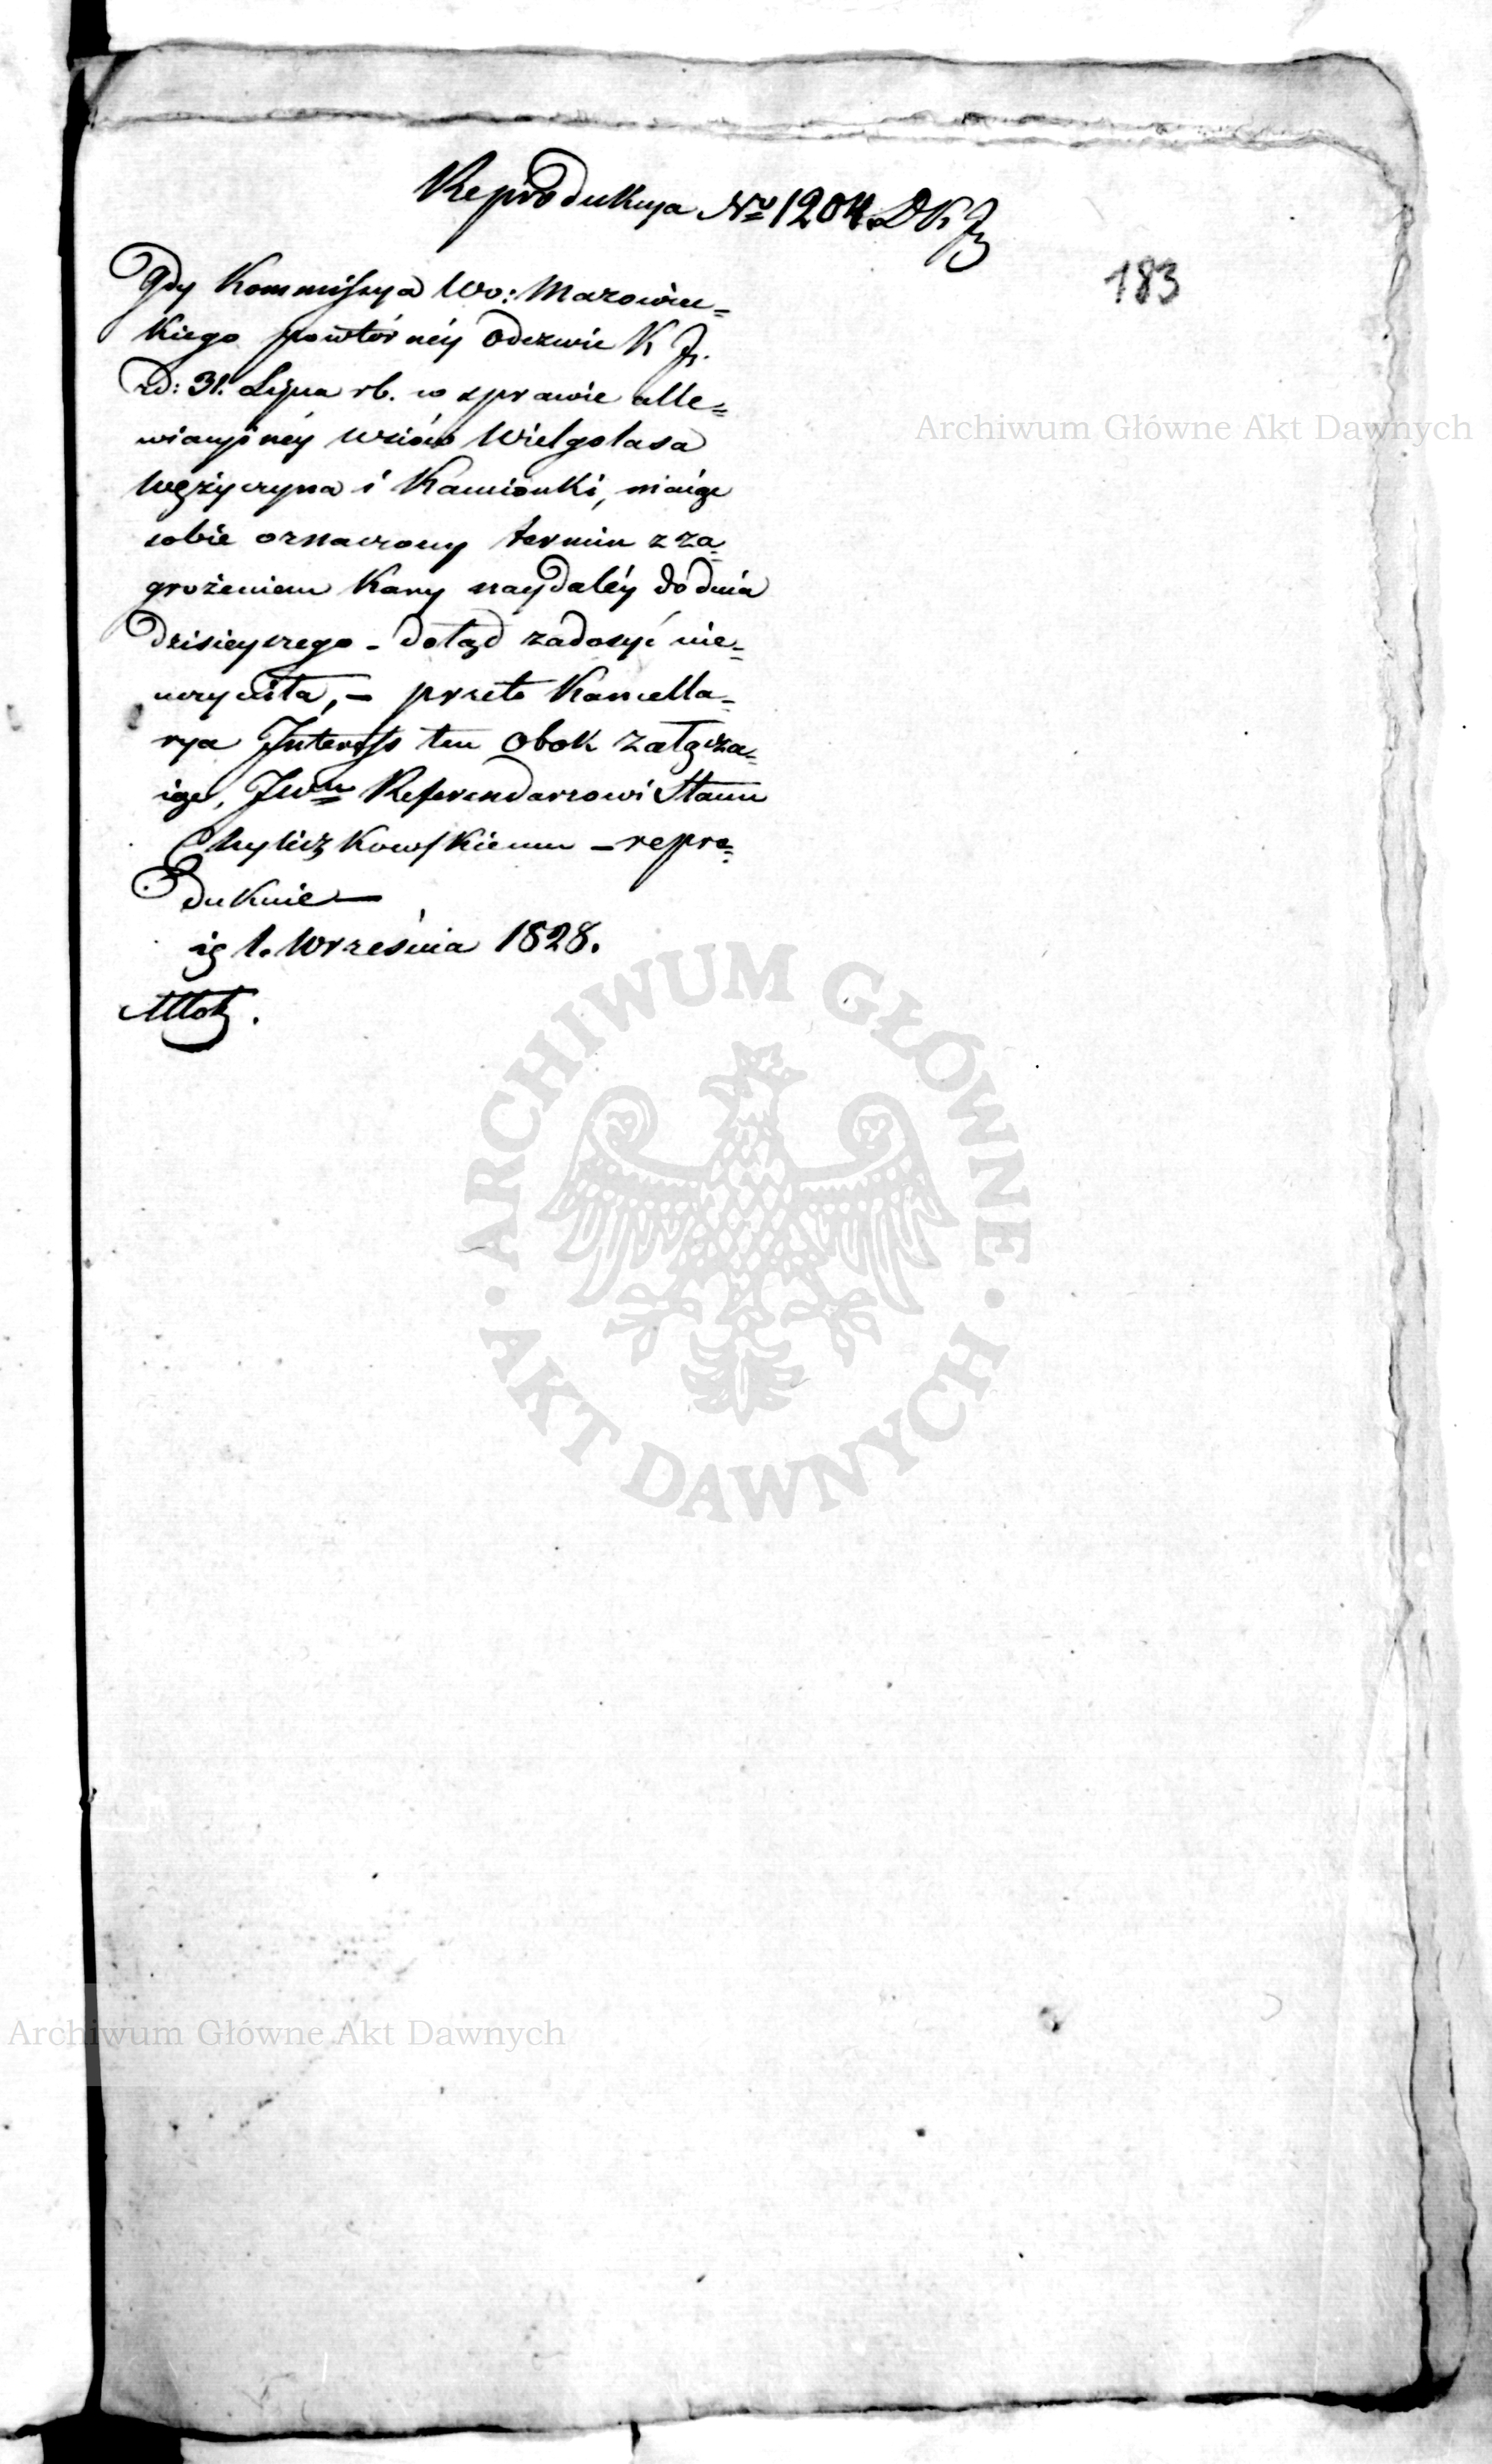 Reprodukcya No 1204. D K J
183
Gdy Kommissya Wo: Mazowiec=
kiego powtórnéy Odezwie K J.
zd: 31. Lipca rb. w sprawie alle=
wiacyinéy wsiów Wielgolasa
Wężyczyna i Kamionki, maiąc
sobie oznaczony termin z za=
grożeniem Kary naydaléy do dnia
dzisieyszego - dotąd zadosyć nie=
uczyniła, – przeto Kancella=
rya Interess ten obok załącza=
iąc, JWmu Referendarzowi Stanu
Chyliczkowskiemu – repro=
dukuie —
1. Września 1828.
Archiwum Główne Akt Dawnych
ARCHIWUM GŁÓWNE AKT DAWNYCH
Archiwum Główne Akt Dawnych